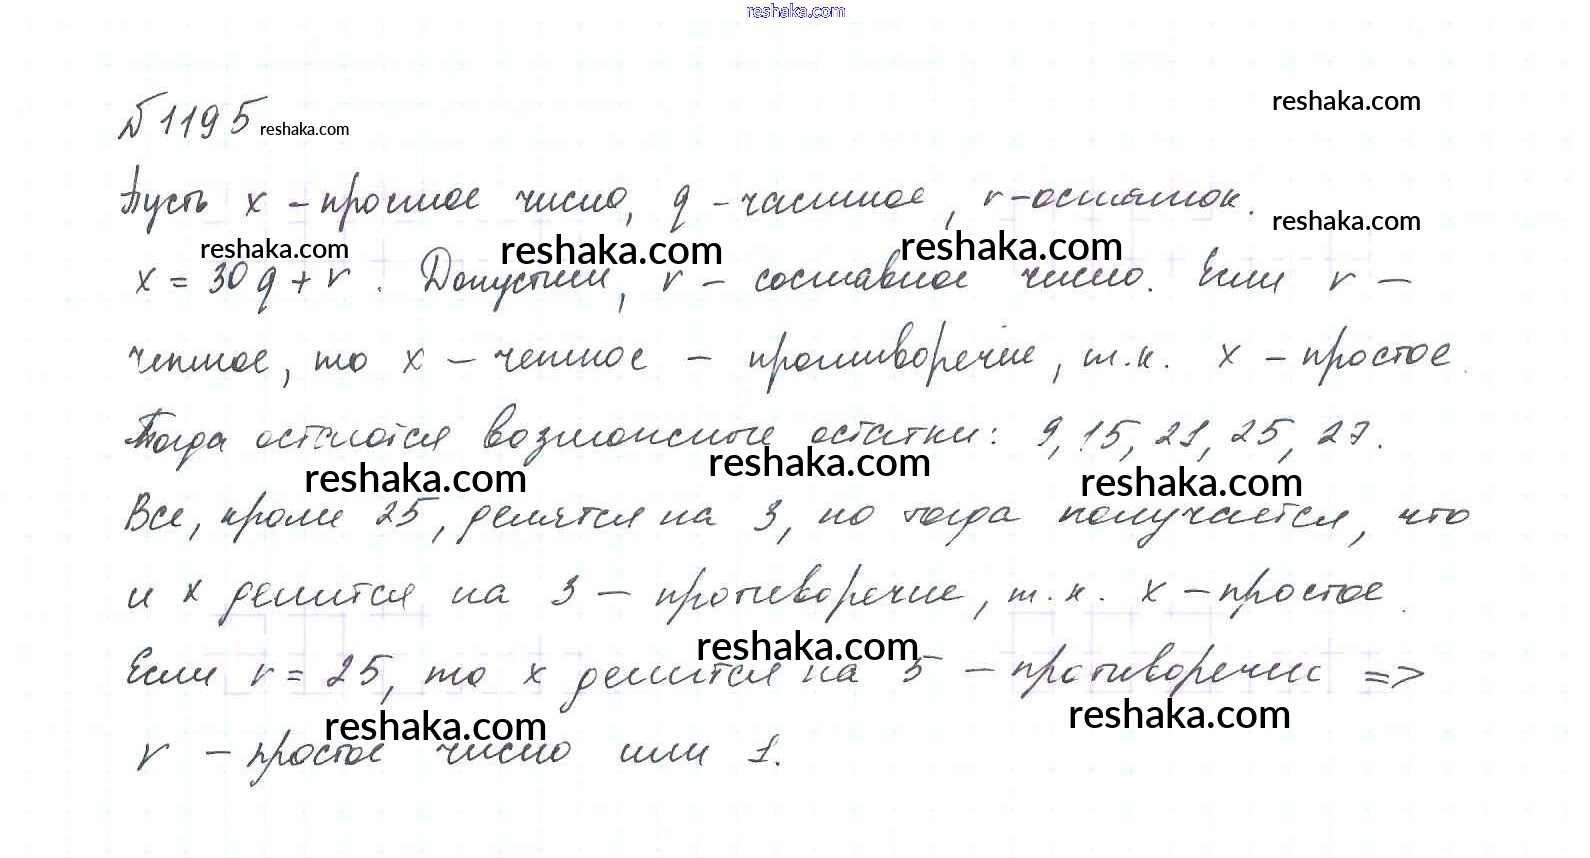 reshaka.com
reshaka.com
№1195 reshaka.com
Пусть x – простое число, q – частное, r – остаток.
reshaka.com reshaka.com reshaka.com reshaka.com
x = 30q + r. Допустим, r – составное число. Если r –
четное, то x – четное – противоречие, т.к. x – простое.
Тогда остаются возможные остатки: 9, 15, 21, 25, 27.
reshaka.com reshaka.com reshaka.com
Все, кроме 25, делятся на 3, но тогда получается, что
и x делится на 3 – противоречие, т.к. x – простое.
reshaka.com
Если r = 25, то x делится на 5 – противоречие =>
reshaka.com reshaka.com
r – простое число или 1.